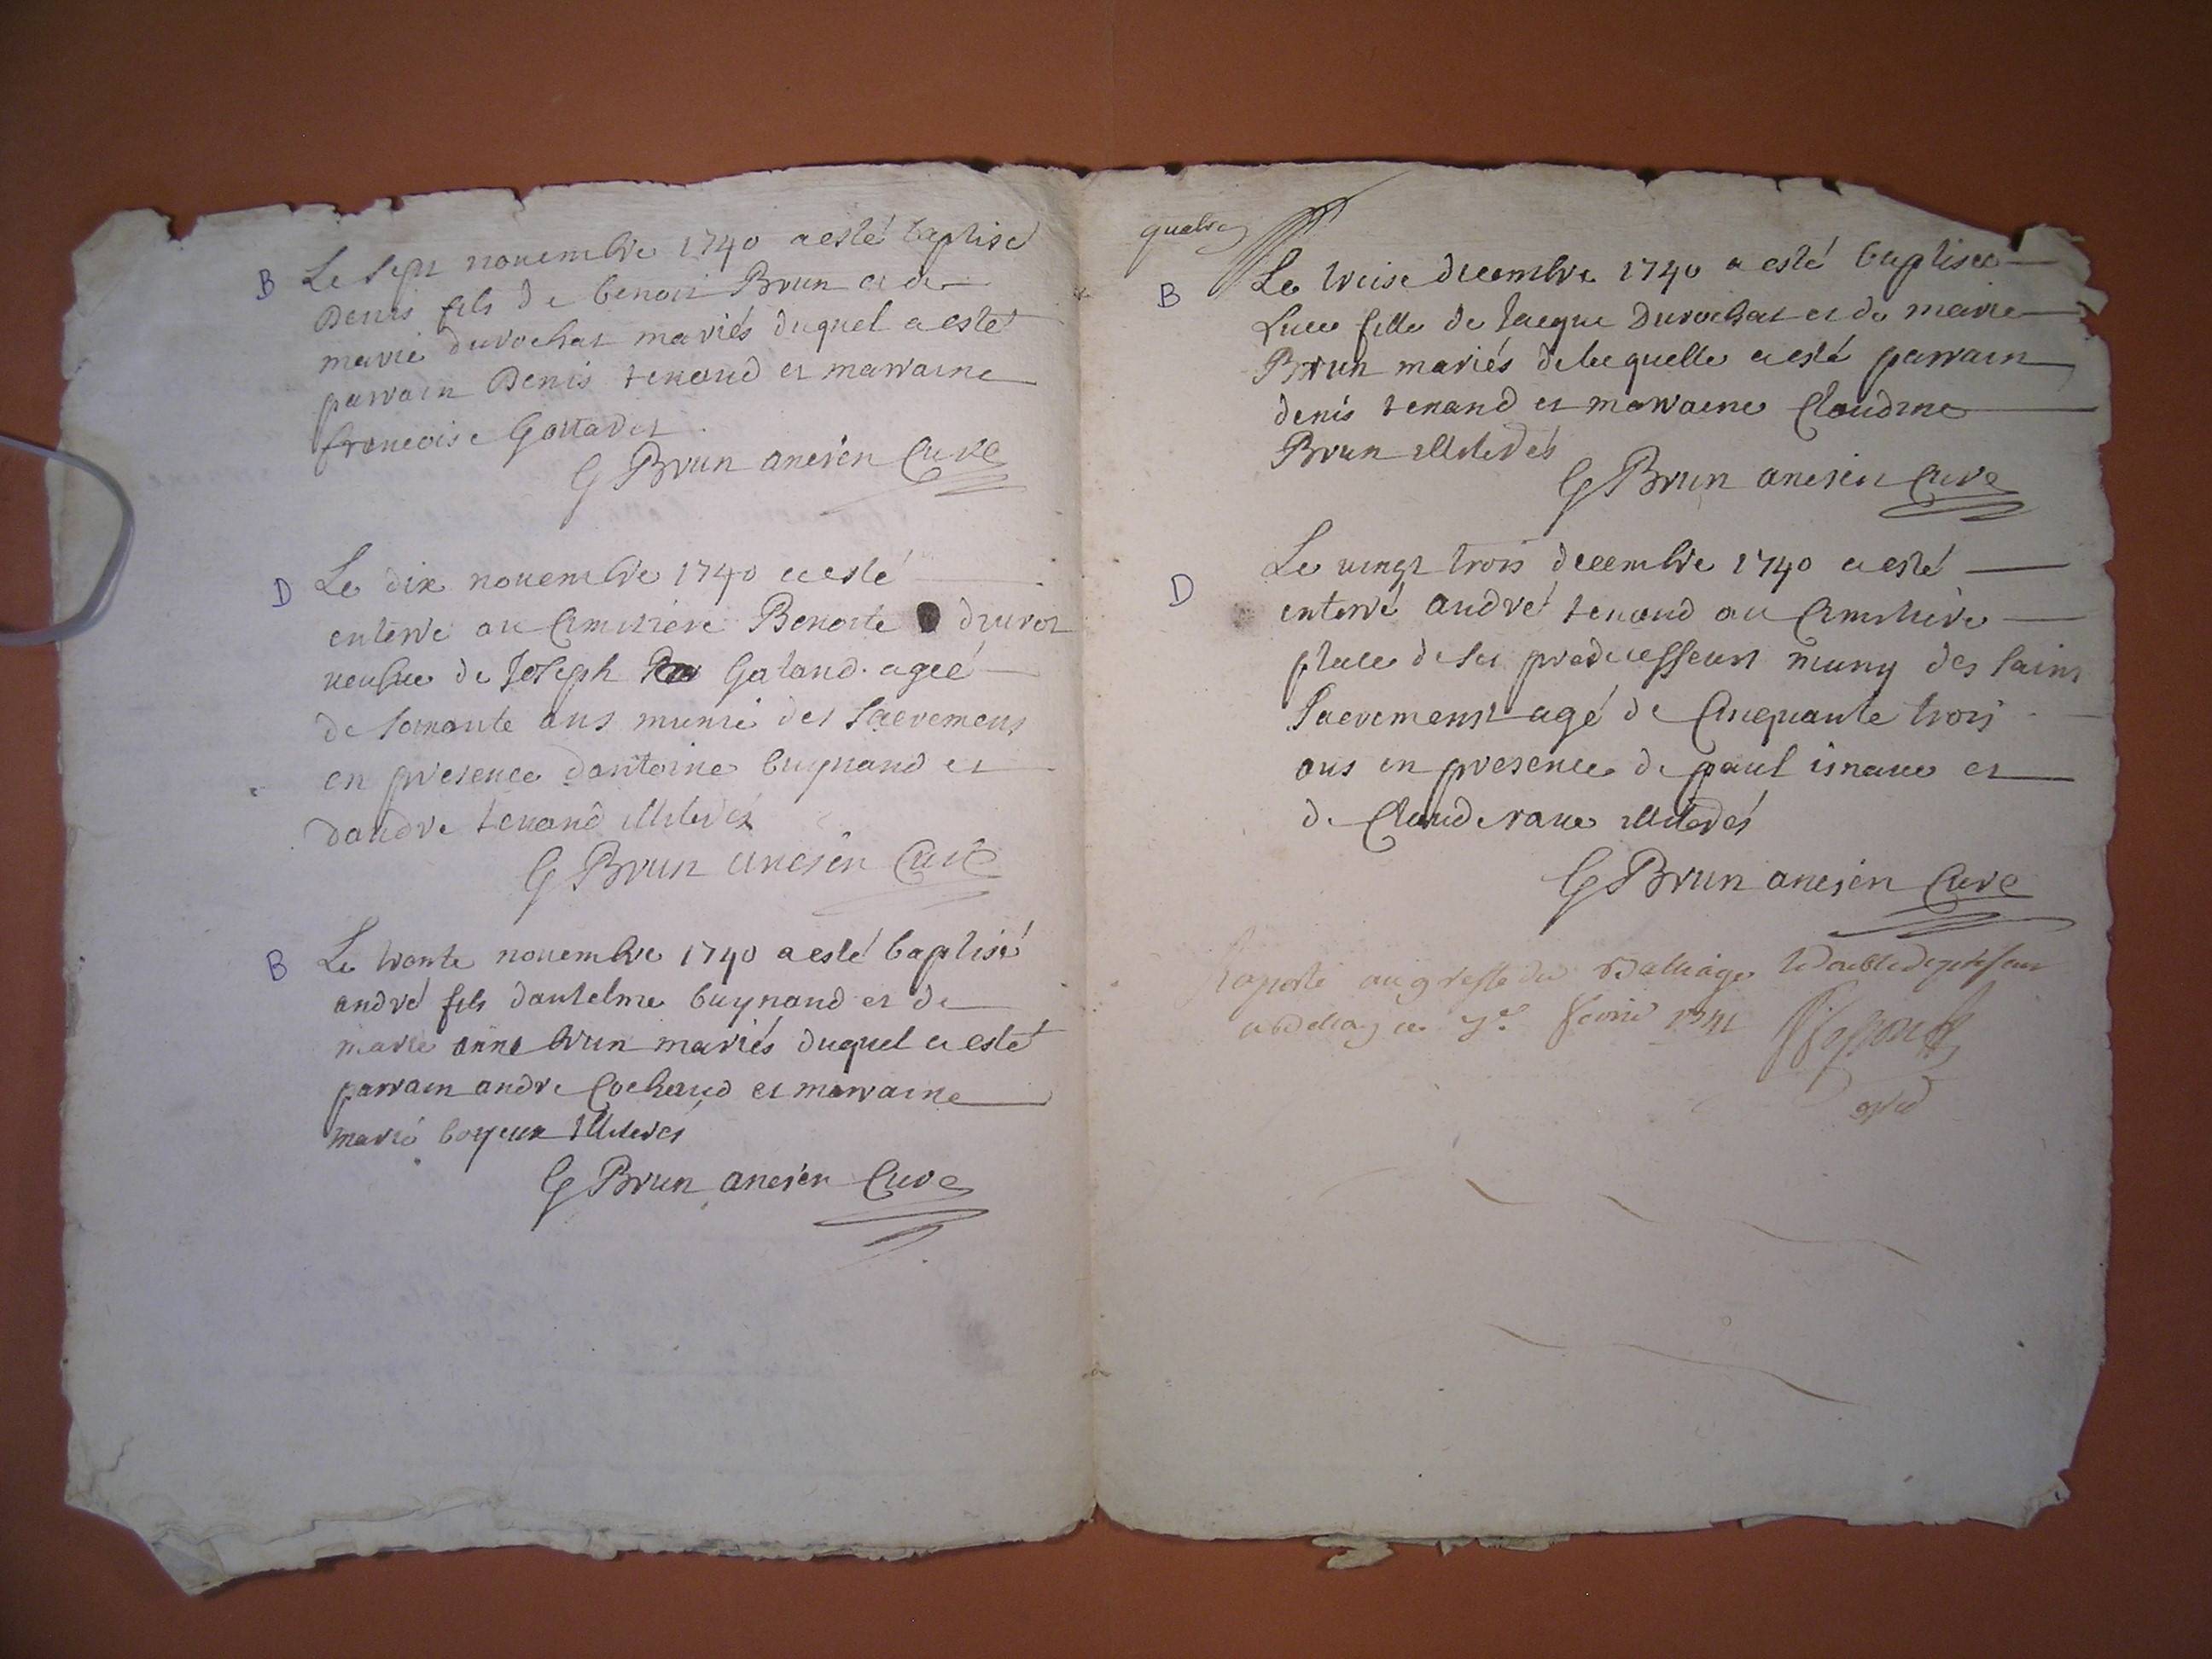 B Le sept novembre 1740 a esté baptisé
Denis fils de benoit Brun et de
marie durochat mariés duquel a esté
parrain Denis tenand et marraine
francoise Gottardet
G Brun ancien Curé
D Le dix novembre 1740 a esté
enterré au Cimitiere Benoite
veufue de Joseph Galand agée
de soixante ans munie des sacremens
en presence dantoine buynand et
dandré tenand illiterés
G Brun ancien Curé
B Le trante novembre 1740 a esté baptisé
andré fils dantelme buynand et de
marie anne brun mariés duquel a esté
parrain andré Cochaud et marraine
marie boyeux illiterés
G Brun ancien Curé
quatre
B Le treise decembre 1740 a esté baptisée
Luce fille de Jacque Durochat et de marie
Brun mariés de laquelle a esté parrain
denis tenand et marraine Claudine
Brun illiterés
G Brun ancien Curé
D Le vingt trois decembre 1740 a esté
enterré andré tenand au Cimitiere
place de ses predecesseurs muny des sains
Sacremenst agé de Cinquante trois
ans en presence de paul et
de Claude illiterés
G Brun ancien Curé
Raporté au greffe du Balliage
ce fevrier 1741